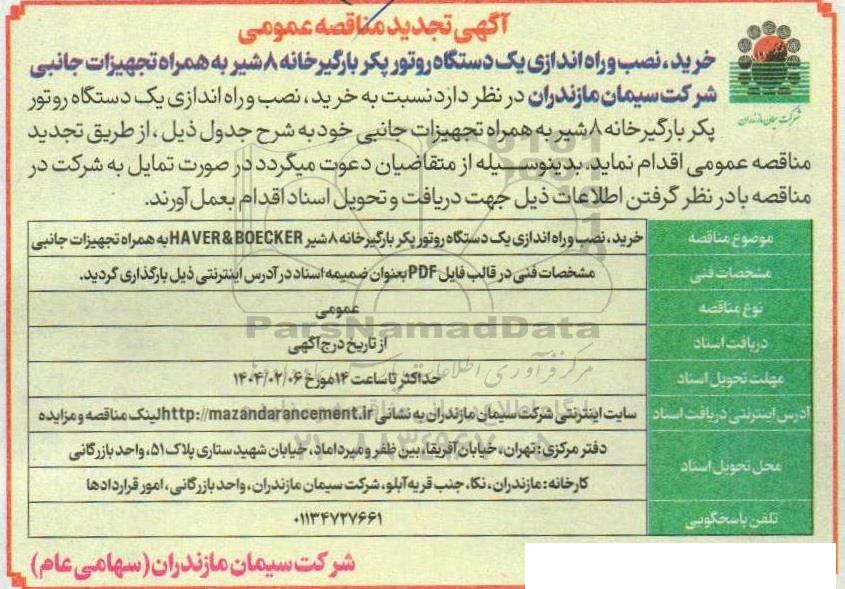 آگهی تجدید مناقصه عمومی
خرید، نصب و راه اندازی یک دستگاه روتور پکر بارگیرخانه ۸ شیر به همراه تجهیزات جانبی
شرکت سیمان مازندران در نظر دارد نسبت به خرید، نصب و راه اندازی یک دستگاه روتور
پکر بارگیرخانه ۸ شیر به همراه تجهیزات جانبی خود به شرح جدول ذیل، از طریق تجدید
مناقصه عمومی اقدام نماید. بدینوسیله از متقاضیان دعوت میگردد در صورت تمایل به شرکت در
مناقصه با در نظر گرفتن اطلاعات ذیل جهت دریافت و تحویل اسناد اقدام بعمل آورند.
شرکت سیمان مازندران
موضوع مناقصه خرید، نصب و راه اندازی یک دستگاه روتور پکر بارگیرخانه ۸ شیر HAVER & BOECKER به همراه تجهیزات جانبی
مشخصات فنی مشخصات فنی در قالب فایل PDF بعنوان ضمیمه اسناد در آدرس اینترنتی ذیل بارگذاری گردید.
نوع مناقصه عمومی
دریافت اسناد از تاریخ درج آگهی
مهلت تحویل اسناد حداکثر تا ساعت ۱۴ مورخ ۱۴۰۴/۰۲/۰۶
آدرس اینترنتی دریافت اسناد سایت اینترنتی شرکت سیمان مازندران به نشانی http://mazandarancement.ir لینک مناقصه و مزایده
محل تحویل اسناد دفتر مرکزی: تهران، خیابان آفریقا، بین ظفر و میرداماد، خیابان شهید ستاری پلاک ۵۱، واحد بازرگانی
کارخانه: مازندران، نکا، جنب قریه آبلو، شرکت سیمان مازندران، واحد بازرگانی، امور قراردادها
تلفن پاسخگویی ۰۱۱۳۴۷۲۷۶۶۱
شرکت سیمان مازندران (سهامی عام)
ParsNamadData